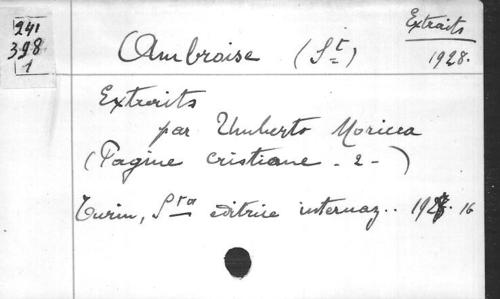 241
398
1
Extraits
1928.
Ambroise (St)
Extraits
par Umberto Moricca
(Pagine cristiane - 2 - )
Turin, Sta editrice internaz.. 1928. 16